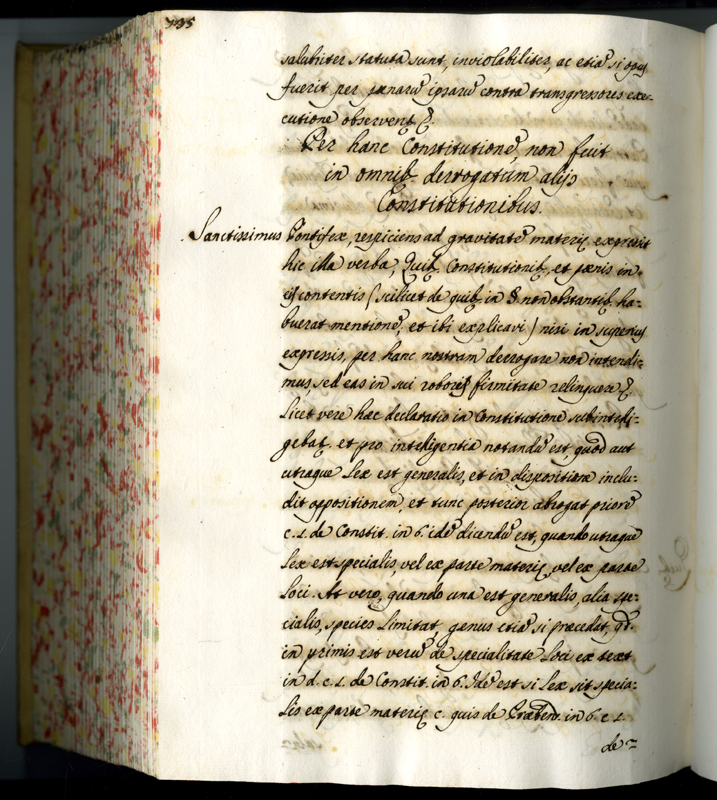 195
salubriter statuta sunt, inviolabiliter, ac etiã si opus
fuerit per pænarũ ipsarũ contra transgressores exe-
cutione observent &.
Per hanc Constitutionẽ, non fuit
in omnib. derrogatum alijs
Constitutionibus.
Sanctissimus Pontifex, respiciens ad gravitatẽ materię expressit
hic illa verba, Quib. Constitutionib. et pænis in
eis contentis (scilicet de quib. in § non obstantib. ha-
buerat mentionẽ, et ibi explicavi) nisi in superius
expressis, per hanc nostram derrogare non intendi-
mus, sed eas in sui roboris firmitate relinquere &.
Licet vere hac declaratio in Constitutione subinteli-
gebat, et pro inteligentia notandũ est, quod aut
utraque Lex est generalis, et in dispositione inclu-
dit oppositionem, et tunc posterior abrogat priorẽ
c. 1. de Constit. in 6. idẽ dicendũ est, quando utraque
Lex est specialis, vel ex parte materię, vel ex parte
Loci. At vero, quando una est generalis, alia spe-
cialis, species Limitat genus etiã si præcedat, qd.
in primis est verũ de specialitate Loci ex text
in d. c. 1. de Constit. in 6. Idẽ est si Lex sit specia-
Lis ex parte materię c. quis de Præbend. in 6. c. 1.
de